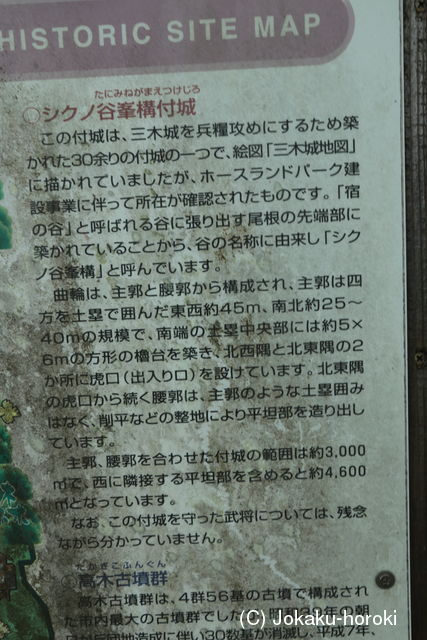 HISTORIC SITE MAP
たにみねがまえつけじろ
○シクノ谷峯構付城
この付城は、三木城を兵糧攻めにするため築
かれた30余りの付城の一つで、絵図「三木城地図」
に描かれていましたが、ホースランドパーク建
設事業に伴って所在が確認されたものです。「宿
の谷」と呼ばれる谷に張り出す尾根の先端部に
築かれていることから、谷の名称に由来し「シク
ノ谷峯構」と呼んでいます。
曲輪は、主郭と腰郭から構成され、主郭は四
方を土塁で囲んだ東西約45m、南北約25〜
40mの規模で、南端の土塁中央部には約5×
6mの方形の櫓台を築き、北西隅と北東隅の2
か所に虎口（出入り口）を設けています。北東隅
の虎口から続く腰郭は、主郭のような土塁囲み
はなく、削平などの整地により平坦部を造り出し
ています。
主郭、腰郭を合わせた付城の範囲は約3,000
㎡で、西に隣接する平坦部を含めると約4,600
㎡となっています。
なお、この付城を守った武将については、残念
ながら分かっていません。
たかぎこふんぐん
○高木古墳群
高木古墳群は、4群56基の古墳で構成され
た市内最大の古墳群でした
昭和39年の朝
団地造成に伴い30数基が消滅し、平成7年
(C) Jokaku-horoki